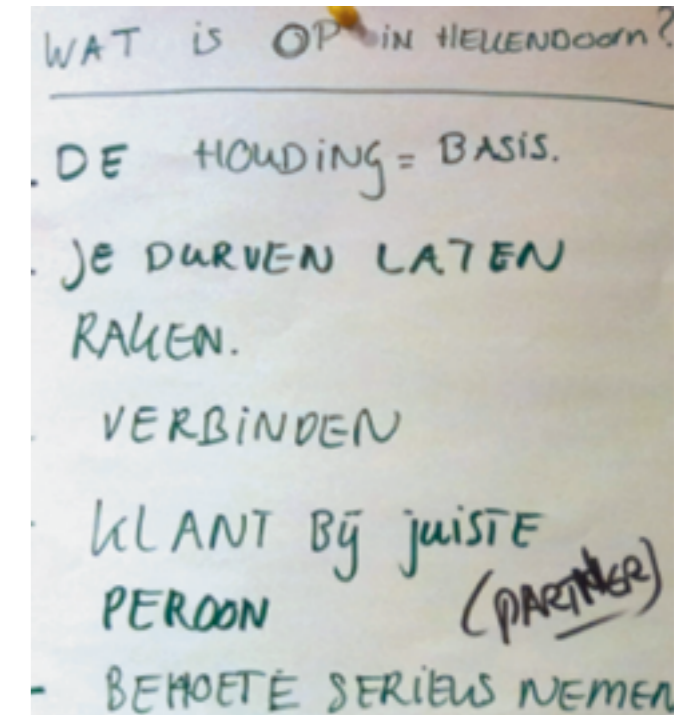 WAT is OP iN HELLENDOORN?
- DE HOUDiNG = BASiS.
- JE DURVEN LATEN
RAKEN.
- VERBiNDEN
- KLANT Bij juiSTE
PEROON (PARTNER)
- BEHOETE SERiEUS NEMEN